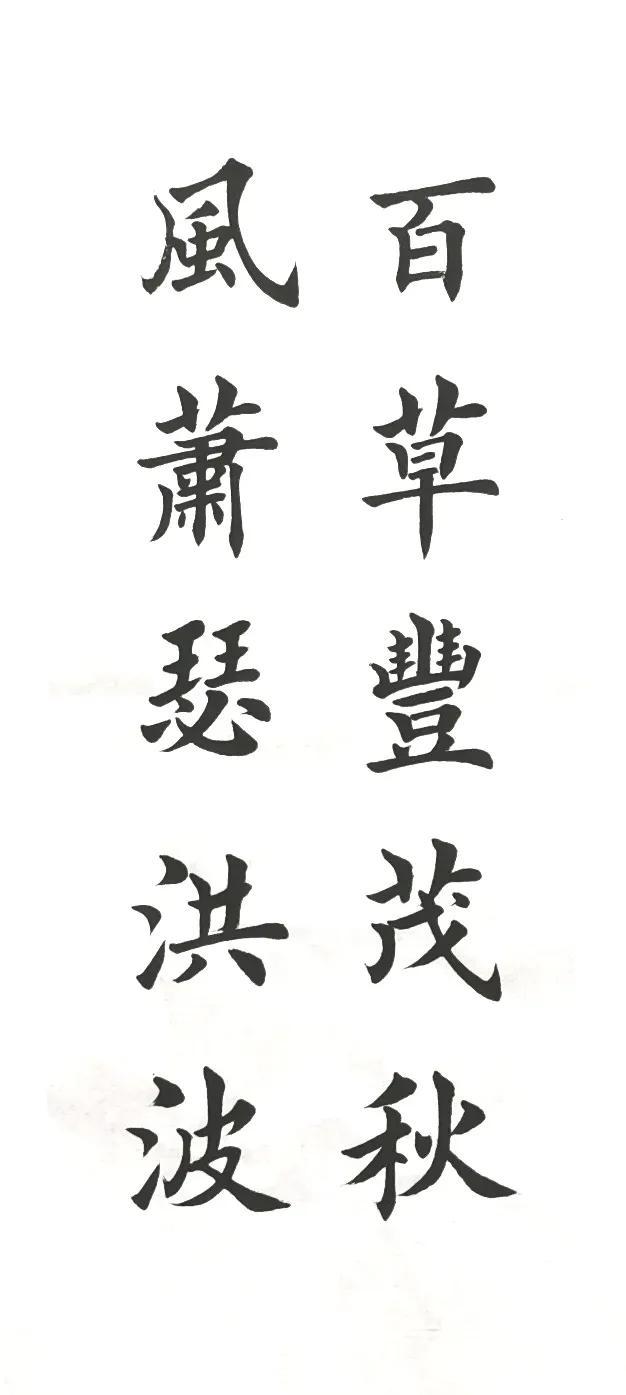 百草豐茂秋
風蕭瑟洪波